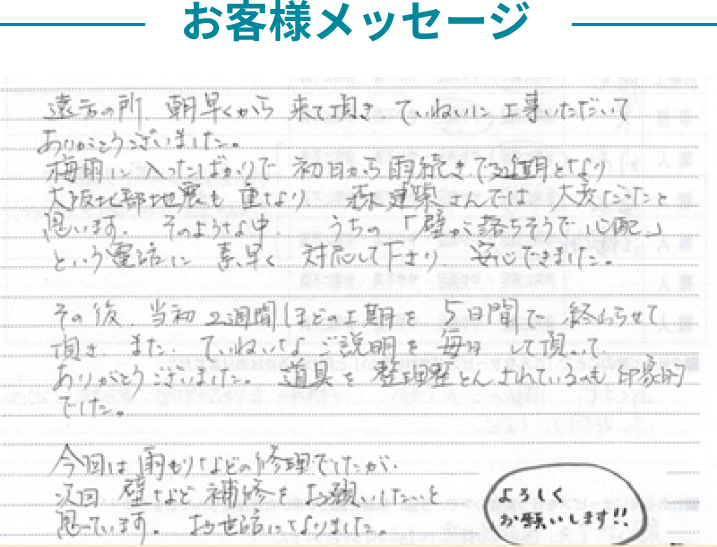 お客様メッセージ
遠方の所、朝早くから 来て頂き、ていねいに工事いただいて
ありがとうございました。
梅雨に入ったばかりで 初日から雨続き、工期となり
大阪北部地震も重なり、森建築さんでは 大変だったと
思います。そのような中、うちの「壁が落ちそうで心配。」
という電話に 素早く 対応して下さり 安心できました。
その後、当初2週間ほどの工期を 5日間で 終わらせて
頂き、また、ていねいな ご説明を 毎日 して頂いて、
ありがとうございました。道具を 整理整とんされているのも 印象的
でした。
今回は 雨もりなどの修理でしたが、
次回 壁など 補修を お願いしたいと
思っています。お世話になりました。
よろしく
お願いします!!